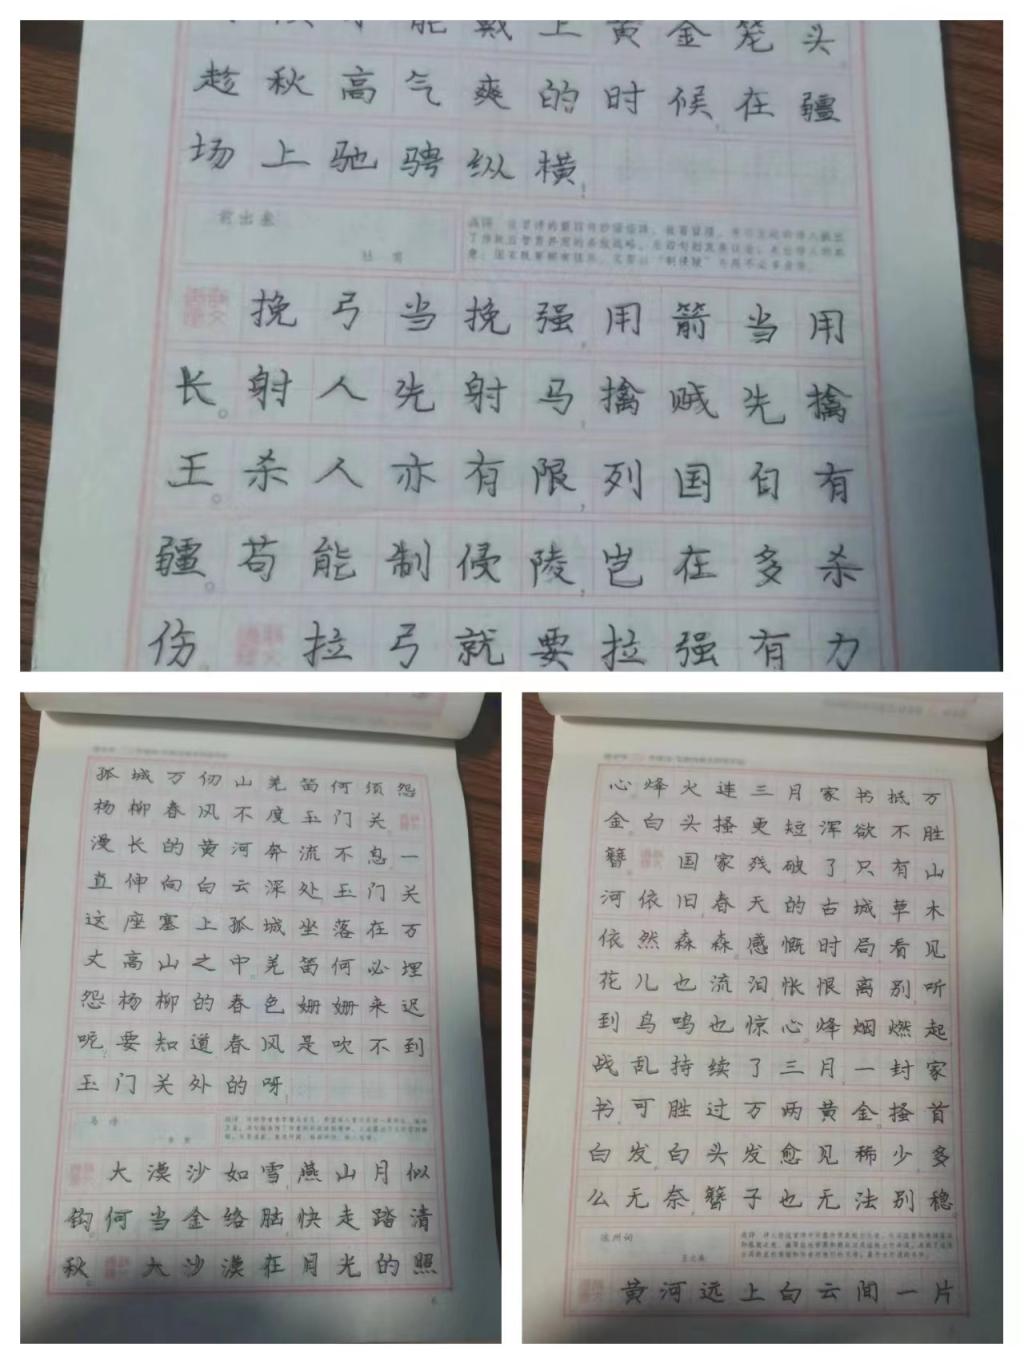 能戴上黄金笼头。
趁秋高气爽的时候,在疆
场上驰骋纵横!
前出塞
杜甫
挽弓当挽强,用箭当用
长。射人先射马,擒贼先擒
王。杀人亦有限,列国自有
疆。苟能制侵陵,岂在多杀
伤。拉弓就要拉强有力
孤城万仞山。羌笛何须怨
杨柳,春风不度玉门关。
漫长的黄河奔流不息,一
直伸向白云深处,玉门关
这座塞上孤城坐落在万
丈高山之中。羌笛何必埋
怨杨柳的春色姗姗来迟
呢,要知道春风是吹不到
玉门关外的呀!
马诗
李贺
大漠沙如雪,燕山月似
钩。何当金络脑,快走踏清
秋。大沙漠在月光的照
6
心。烽火连三月,家书抵万
金。白头搔更短,浑欲不胜
簪。国家残破了,只有山
河依旧,春天的古城草木
依然森森。感慨时局,看见
花儿也流泪,怅恨离别,听
到鸟鸣也惊心。烽烟燃起
战乱持续了三月,一封家
书可胜过万两黄金。搔首
白发,白头发愈见稀少,多
么无奈,簪子也无法别稳。
凉州词
王之涣
黄河远上白云间,一片